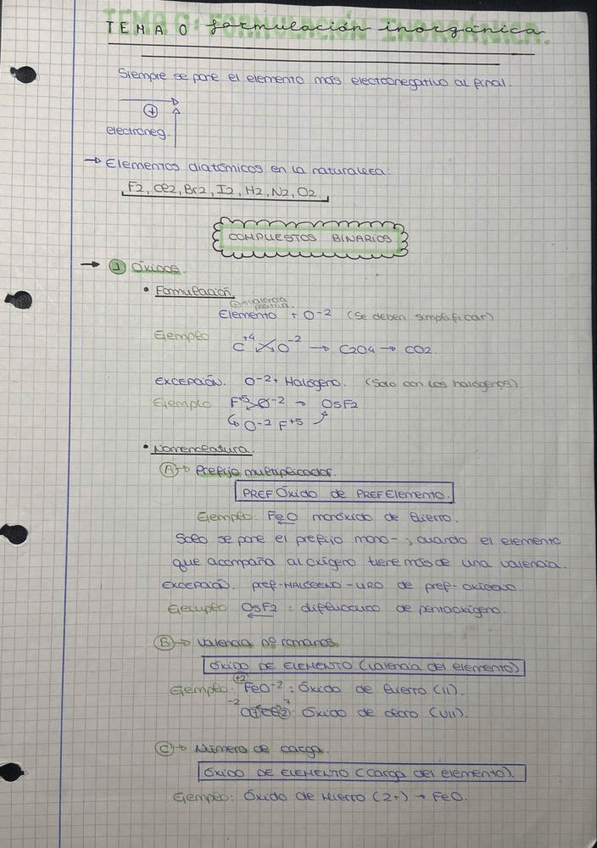 TEMA 0: formulación inorgánica.
Siempre se pone el elemento más electronegativo al final.
+
electroneg.
→ Elementos diatómicos en la naturaleza:
F2, Cl2, Br2, I2, H2, N2, O2.
COMPUESTOS BINARIOS
→ 1 Óxidos.
• Formulación.
Elemento + O-2 (Se deben simplificar)
Ejemplo C+4 O-2 → C2O4 → CO2
EXCEPCIÓN. O-2 + Halógeno. (Solo con los halógenos)
Ejemplo F+5 O-2 → O5F2
↳ O-2 F+5
• Nomenclatura.
A → Prefijo multiplicador.
PREFÓxido de PREFElemento.
Ejemplo. FeO monóxido de hierro.
Solo se pone el prefijo mono-, cuando el elemento
que acompaña al oxígeno tiene más de una valencia.
EXCEPCIÓN. pref-HALÓGENO-URO de pref-oxígeno.
Ejemplo O5F2: difluoruro de pentaoxígeno.
B → Valencia nº romanos.
ÓXIDO DE ELEMENTO (Valencia del elemento)
Ejemplo: +2 FeO-2: Óxido de hierro (II).
Óxido de cloro (VII).
C → Número de carga.
ÓXIDO DE ELEMENTO (Carga del elemento).
Ejemplo: Óxido de Hierro (2+) → FeO.